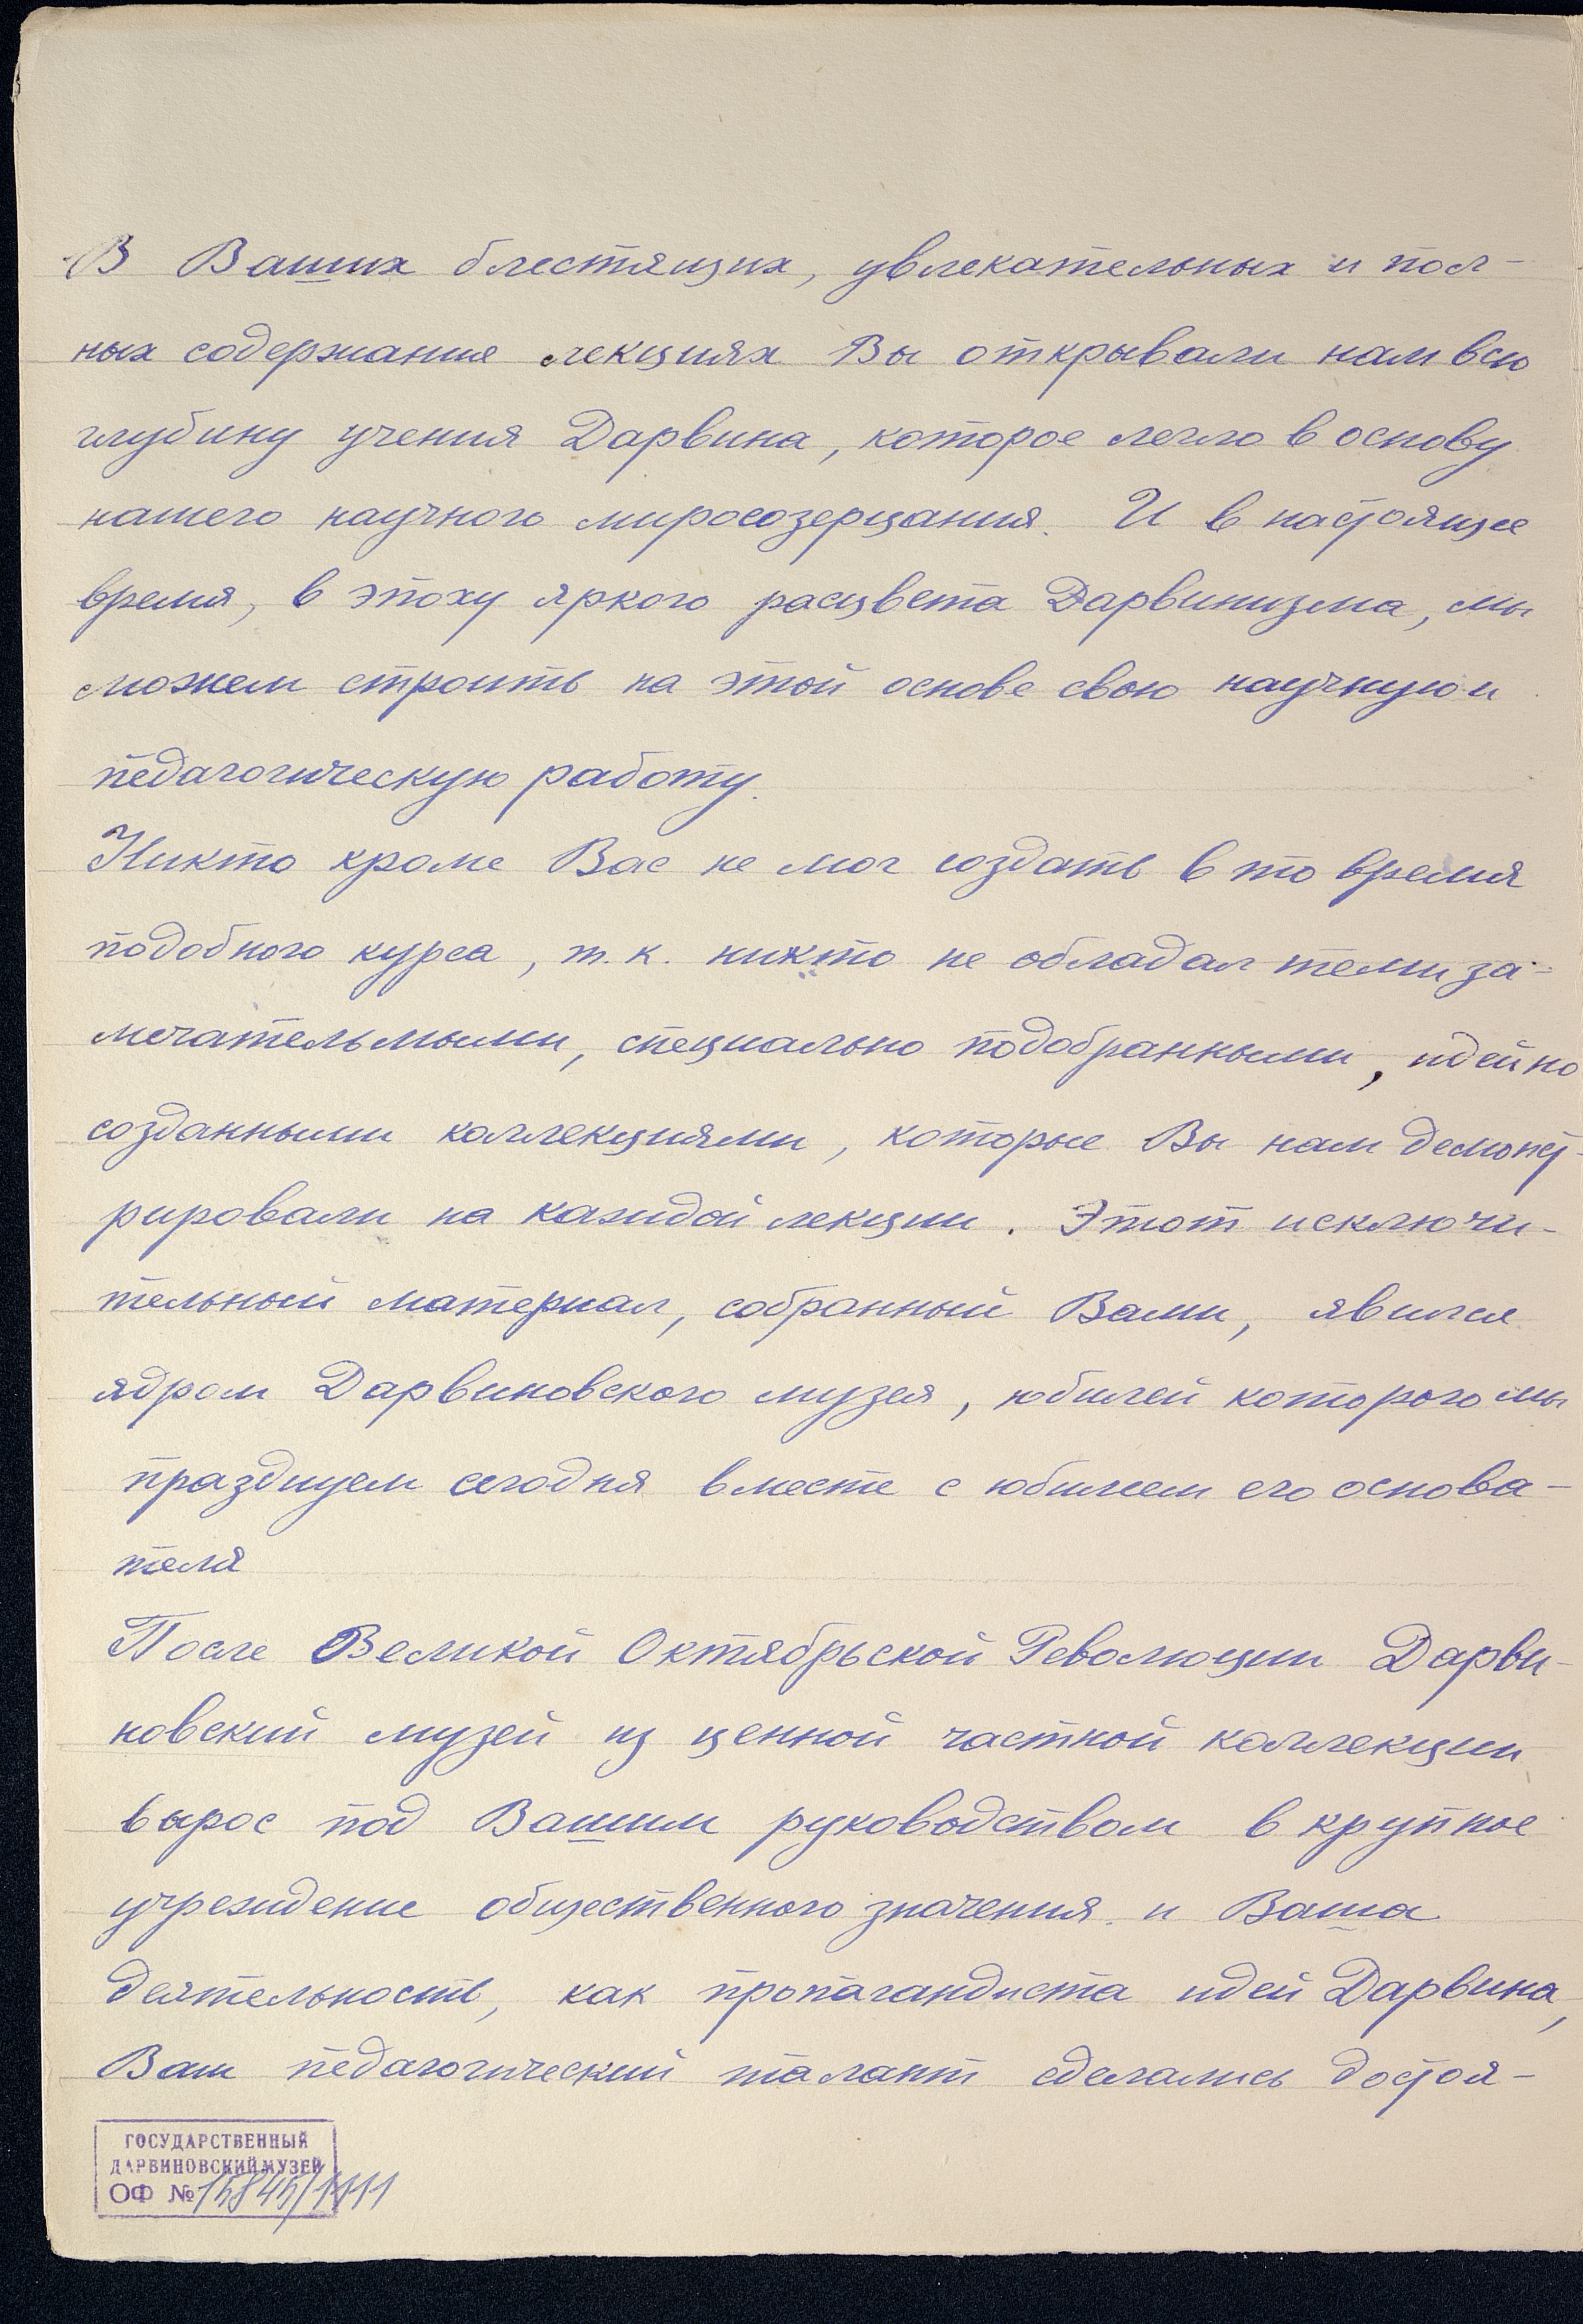 В Ваших блестящих, увлекательных и пол-
ных содержания лекциях Вы открывали нам всю
глубину учения Дарвина, которое легло в основу
нашего научного миросозерцания. И в настоящее
время, в эпоху яркого расцвета Дарвинизма, мы
можем строить на этой основе свою научную и
педагогическую работу.
Никто кроме Вас не мог создать в то время
подобного курса, т.к. никто не обладал теми за-
мечательными, специально подобранными, идейно
созданными коллекциями, которые Вы нам демонст-
рировали на каждой лекции. Этот исключи-
тельный материал, собранный Вами, явился
ядром Дарвиновского музея, юбилей которого мы
празднуем сегодня вместе с юбилеем его основа-
теля
После Великой Октябрьской Революции Дарви-
новский музей из ценной частной коллекции
вырос под Вашим руководством в крупное
учреждение общественного значения и Ваша
деятельность, как пропагандиста идей Дарвина,
Ваш педагогический талант сделались достоя-
ГОСУДАРСТВЕННЫЙ
ДАРВИНОВСКИЙ МУЗЕЙ
ОФ №